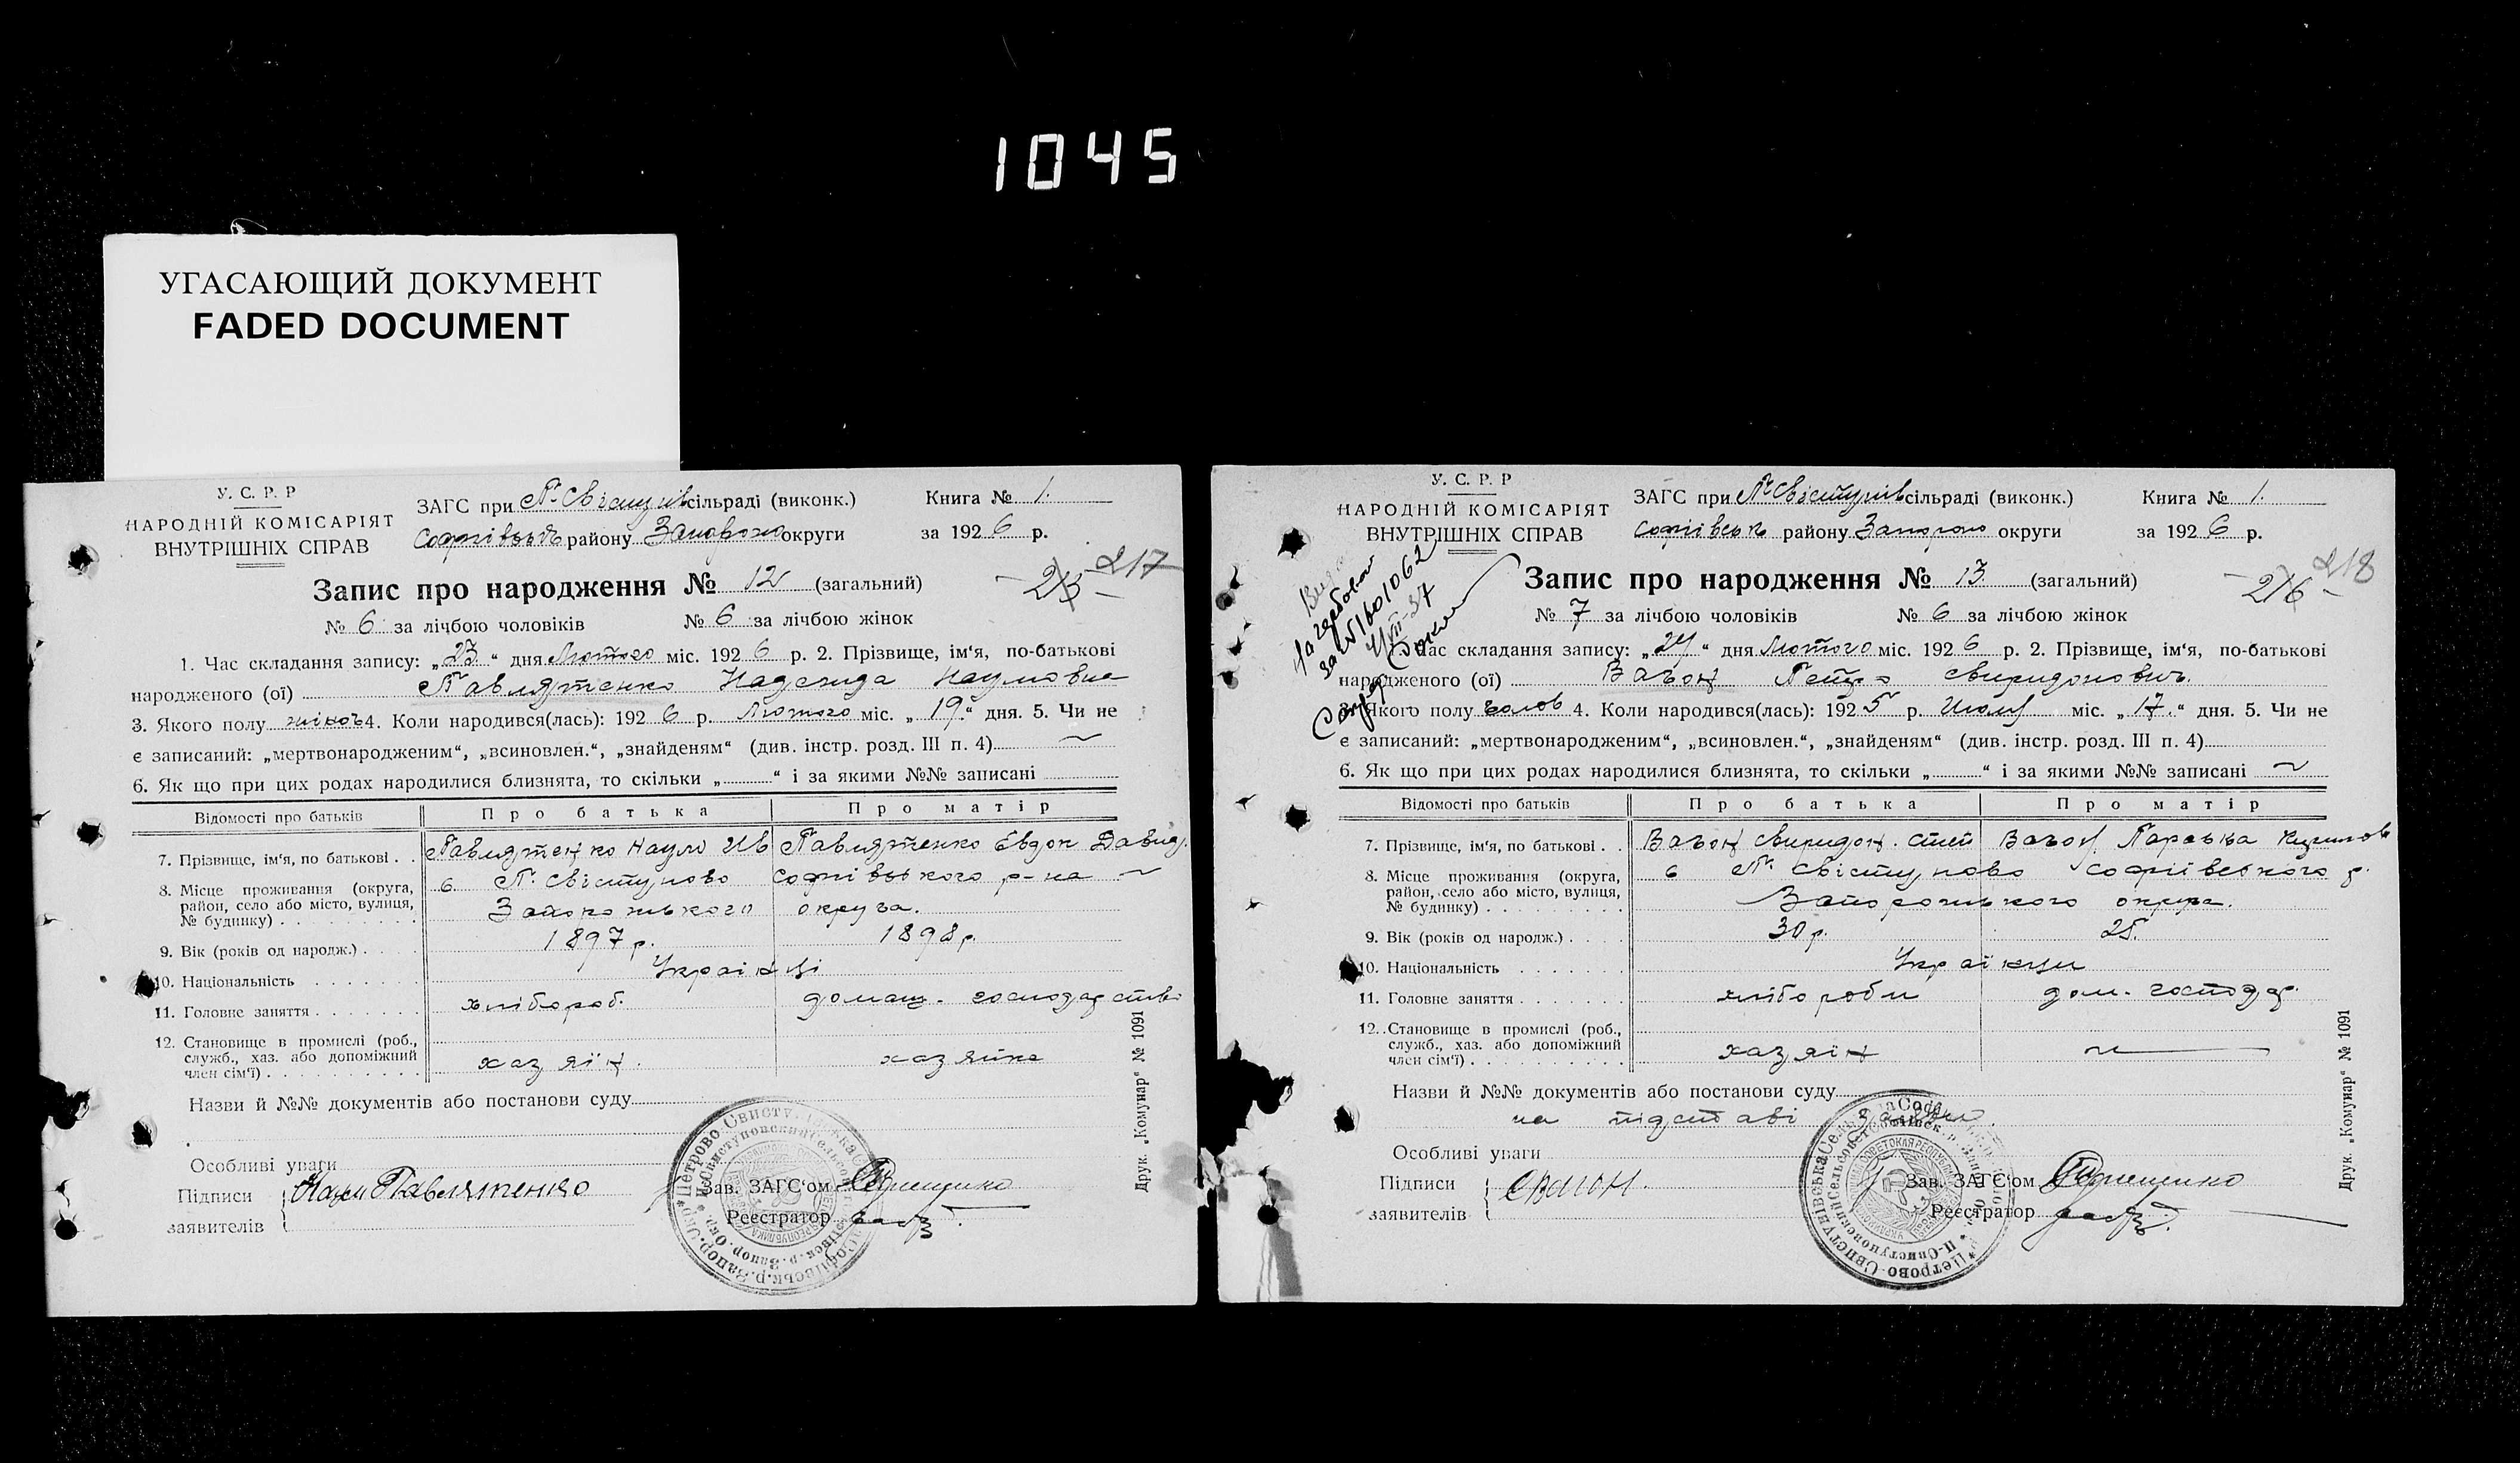 1045
УГАСАЮЩИЙ ДОКУМЕНТ
FADED DOCUMENT
У. С. Р. Р
НАРОДНІЙ КОМІСАРІЯТ
ВНУТРІШНІХ СПРАВ
ЗАГС при П. Свістунів сільраді (виконк.)
Софіївськ району Запорож округи
Книга № 1.
за 1926 р.
217
Запис про народження № 12 (загальний)
№ 6 за лічбою чоловіків № 6 за лічбою жінок
1. Час складання запису: „23“ дня Лютого міс. 1926 р. 2. Прізвище, ім‘я, по-батькові
народженого (ої) Павлятенко Надежда Наумовна
3. Якого полу жіноч 4. Коли народився(лась): 1926 р. Лютого міс. „19“ дня. 5. Чи не
є записаний: „мертвонародженим“, „всиновлен.“, „знайденям“ (див. інстр. розд. III п. 4)
6. Як що при цих родах народилися близнята, то скільки „ “ і за якими №№ записані
Відомості про батьків Про батька Про матір
7. Прізвище, ім‘я, по батькові . . Павлятенко Наум Ив Павлятенко Евдок Давид.
8. Місце проживання (округа, район, село або місто, вулиця, № будинку) . . . с. П. Свістуново Софіївського р-на
Запорожського округа.
9. Вік (років од народж.) . . . 1897 р. 1898 р.
10. Національність . . . Українці
11. Головне заняття . . . хлібороб. домаш. господарство
12. Становище в промислі (роб., служб., хаз. або допоміжний член сім‘ї) . . . хазяїн. хазяйка
Назви й №№ документів або постанови суду
Особливі уваги
Підписи заявителів Наум Павлятенко
Зав. ЗАГС‘ом
Реєстратор
Друк. „Комунар“ № 1091
У. С. Р. Р
НАРОДНІЙ КОМІСАРІЯТ
ВНУТРІШНІХ СПРАВ
ЗАГС при П. Свістунів сільраді (виконк.)
Софіївськ району Запорож округи
Книга № 1.
за 1926 р.
218
Запис про народження № 13 (загальний)
№ 7 за лічбою чоловіків № 6 за лічбою жінок
1. Час складання запису: „24“ дня Лютого міс. 1926 р. 2. Прізвище, ім‘я, по-батькові
народженого (ої) Спиридонович.
3. Якого полу чолов 4. Коли народився(лась): 1925 р. Июля міс. „17.“ дня. 5. Чи не
є записаний: „мертвонародженим“, „всиновлен.“, „знайденям“ (див. інстр. розд. III п. 4)
6. Як що при цих родах народилися близнята, то скільки „ “ і за якими №№ записані
Відомості про батьків Про батька Про матір
7. Прізвище, ім‘я, по батькові . .
8. Місце проживання (округа, район, село або місто, вулиця, № будинку) . . . с. П. Свістуново Софіївського р.
Запорожського округа.
9. Вік (років од народж.) . . . 30 р. 25.
10. Національність . . . Українци
11. Головне заняття . . . хлібороби дом. господар.
12. Становище в промислі (роб., служб., хаз. або допоміжний член сім‘ї) . . . хазяїн
Назви й №№ документів або постанови суду
на підставі
Особливі уваги
Підписи заявителів
Зав. ЗАГС‘ом
Реєстратор
Друк. „Комунар“ № 1091